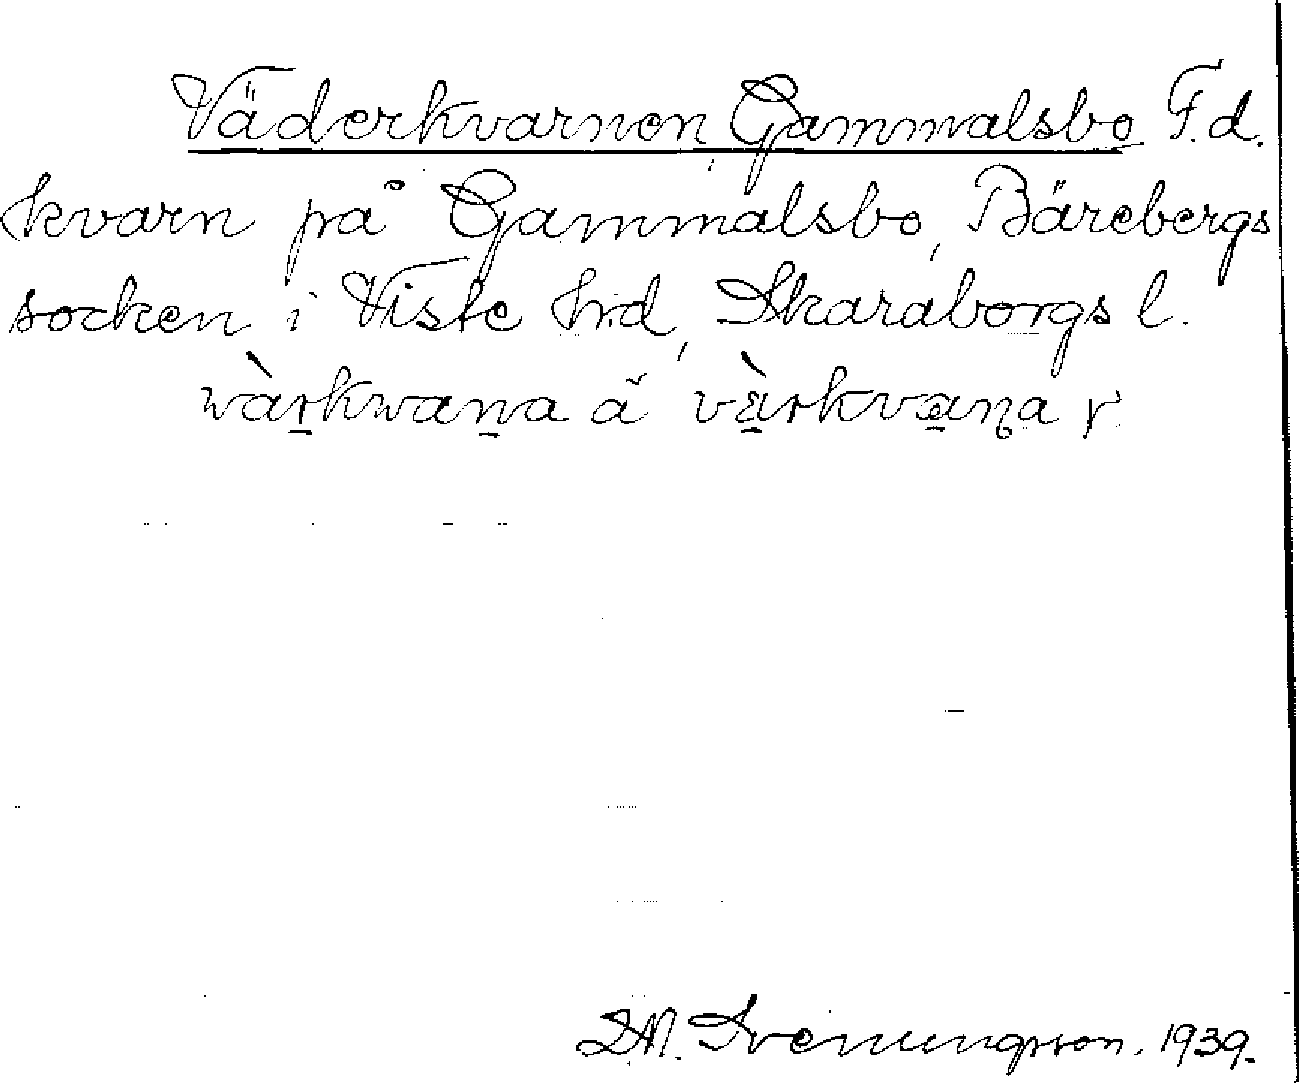 Väderkvarnen, Gammalsbo F.d.
kvarn på Gammalsbo, Bärebergs
socken i Viste hrd, Skaraborgs l.
wàrkwana å vàrkvana r.
D.N. Svenungsson. 1939.